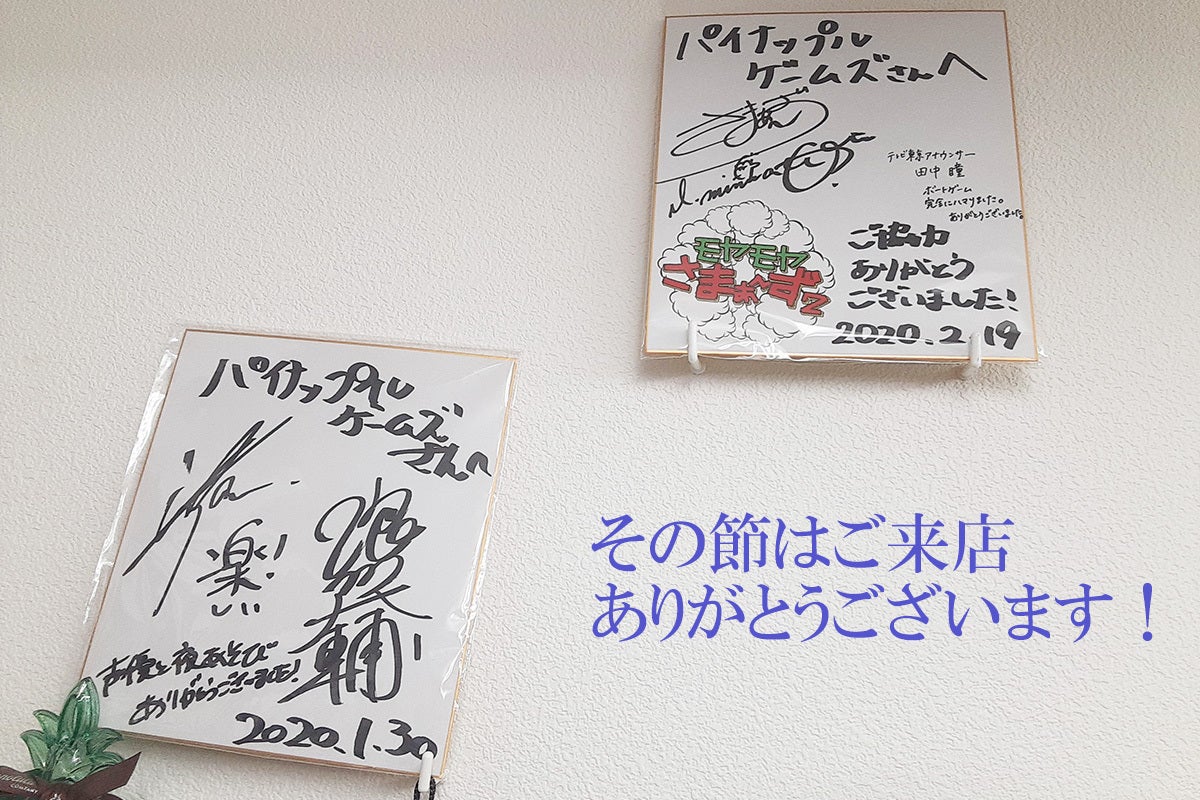 パイナップル
ゲームズさんへ
テレビ東京アナウンサー
田中 瞳
ボードゲーム
完全にハマりました。
ありがとうございました
モヤモヤ
さまぁ～ず2
ご協力
ありがとう
ございました!
2020.2.19
パイナップル
ゲームズ
さんへ
楽しい!
声優と夜あそび
ありがとうございました!
2020.1.30
その節はご来店
ありがとうございます！
COMPANY